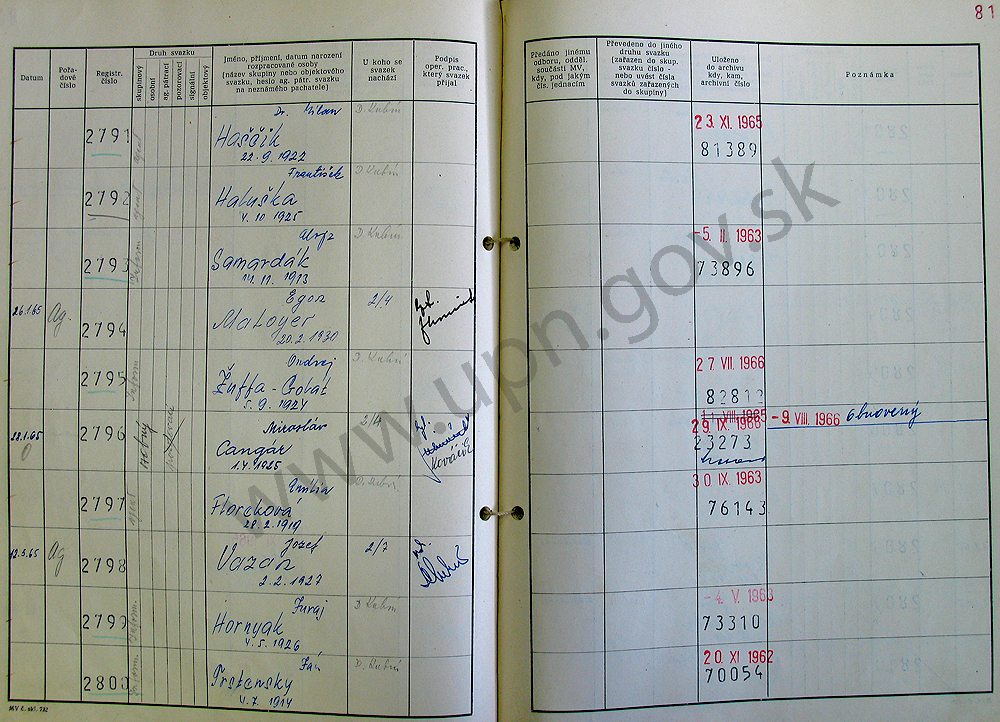 81
Datum
Pořa-
dové
číslo
Registr.
číslo
Druh svazku
skupinový
osobní
ag. pátrací
pozorovací
signální
objektový
Jméno, příjmení, datum narození
rozpracované osoby
(název skupiny nebo objektového
svazku, heslo ag. pátr. svazku
na neznámého pachatele)
U koho se
svazek
nachází
Podpis
oper. prac.,
který svazek
přijal
Předáno jinému
odboru, odděl.
součásti MV,
kdy, pod jakým
čís. jednacím
Převedeno do jiného
druhu svazku
(zařazen do skup.
svazku číslo -
nebo uvést čísla
svazků zařazených
do skupiny)
Uloženo
do archivu
kdy, kam,
archivní číslo
Poznámka
2791 Dr. Milan D. Kubín 23. XI. 1965
Haščik 81389
22.9.1922
2792 František D. Kubín
Haluška
4.10 1925
2793 Alojz D. Kubín -5. II. 1963
Samardák 73896
14.11.1913
26.1.65 Ag. 2794 Egon 2/4
Matoyer
20.2.1930
2795 Ondrej D. Kubín 27. VII. 1966
Žuffa-Gotat 82812
5.9.1924
28.1.65 2796 osobný Miroslav 2/4 11. VIII. 1965 -9. VIII. 1966 Obnovený
Cangár Kováčik 29. IX. 1966
1.4.1925 23273
2797 Emília D. Kubín 30 IX. 1963
Floreková 76143
28.2.1919
12.3.65 Ag 2798 Jozef 2/7
Vazan
2.2.1927
2799 Juraj D. Kubín -4. V. 1963
Hornyak 73310
4.5.1926
2800 Ján D. Kubín 20. XI 1962
Trstensky 70054
4.7.1914
MV č. skl. 732
www.upn.gov.sk